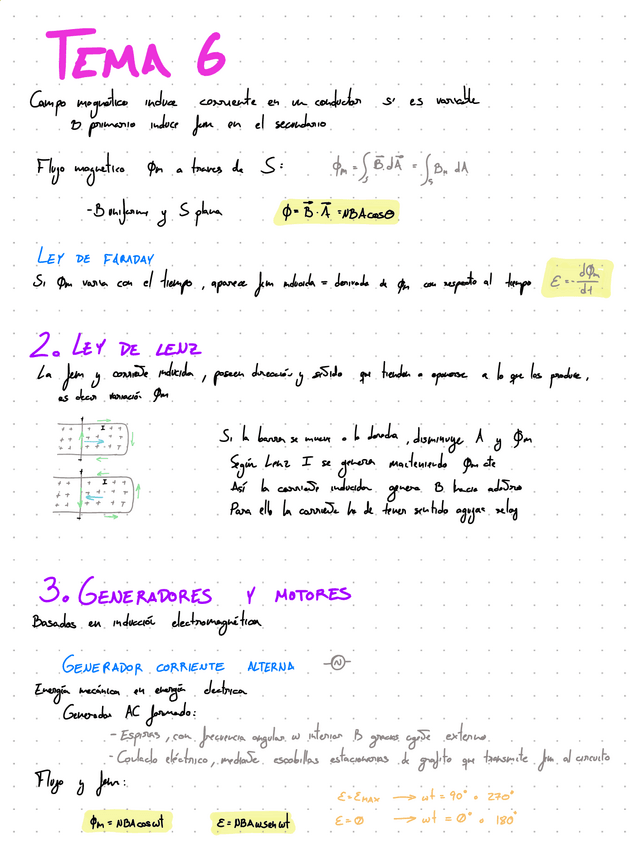 TEMA 6
Campo magnético induce corriente en un conductor si es variable
B primario induce fem en el secundario
Flujo magnético Φm a traves de S: Φm = ∫s B⃗ dA⃗ = ∫s Bn dA
- B uniforme y S plana Φ = B⃗ · A⃗ = NBA cosθ
LEY DE FARADAY
Si Φm varia con el tiempo, aparece fem inducida = derivada de Φm con respecto al tiempo ε = - dΦm/dt
2. LEY DE LENZ
La fem y corriente inducida, poseen dirección y sentido que tienden a oponerse a lo que las produce,
es decir variación Φm
I
Si la barra se mueve a la derecha, disminuye A y Φm
Según Lenz I se genera manteniendo Φm cte
Así la corriente inducida genera B hacia adentro
I
Para ello la corriente ha de tener sentido agujas reloj
3. GENERADORES Y MOTORES
Basados en inducción electromagnética
GENERADOR CORRIENTE ALTERNA
Energía mecánica en energía electrica
Generador AC formado:
- Espiras, con frecuencia angular w interior B gracias agente externo
- Contacto eléctrico, mediante escobillas estacionarias de grafito que transmite fem al circuito
Flujo y fem:
ε = εMAX → wt = 90° o 270°
Φm = NBA cos wt ε = NBA w sen wt ε = 0 → wt = 0° o 180°